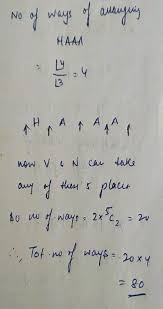 No of ways of arranging
HAAA
= ⌊4 / ⌊3 = 4
↑ H ↑ A ↑ A ↑ A ↑
now V & N can take
any of then 5 places
So no of ways = 2x ⁵C₂ = 20
∴, Tot no of ways = 20 x 4
= 80